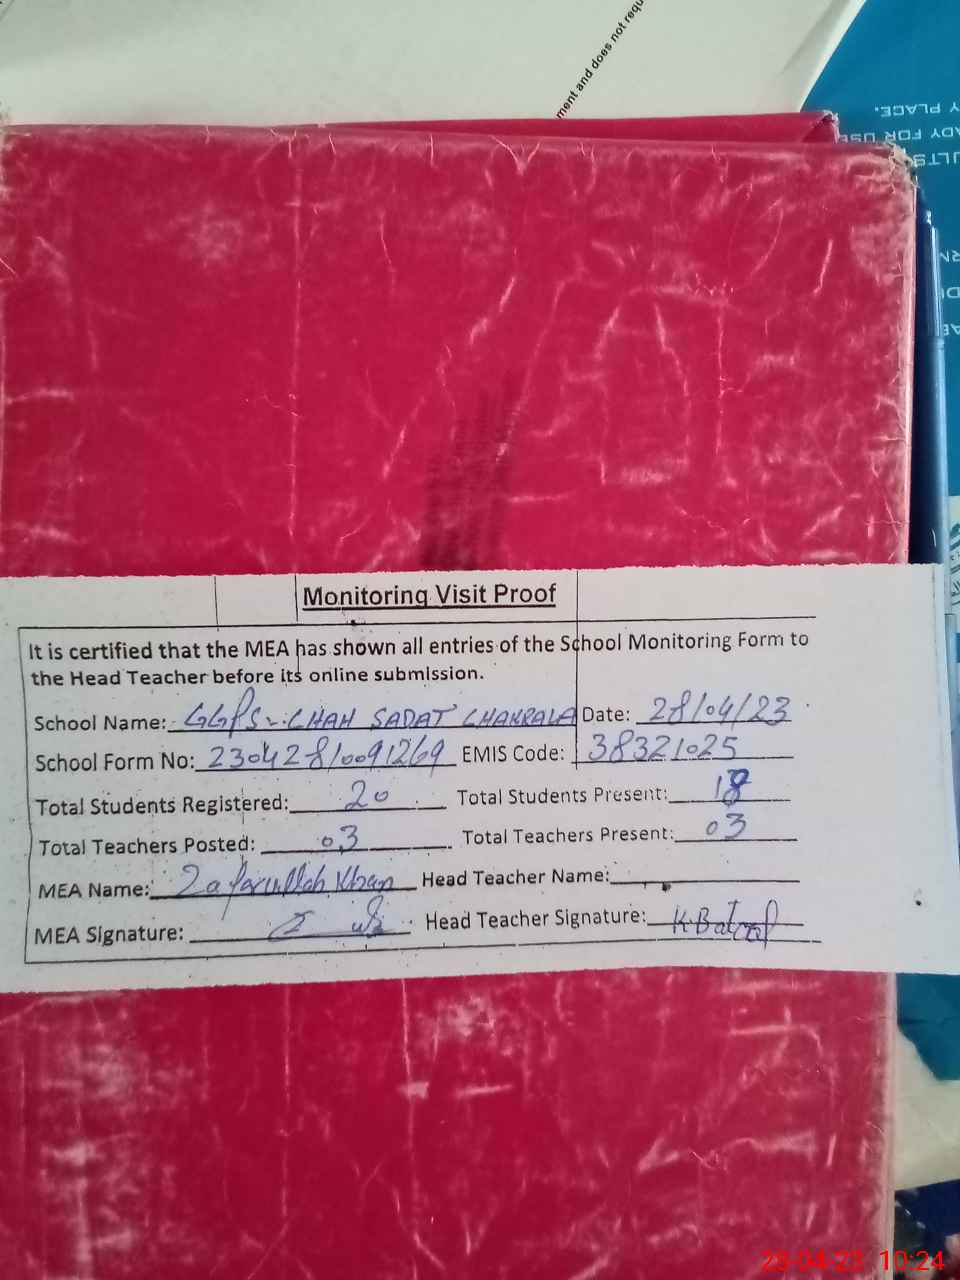 ment and does not requ
Y PLACE.
ADY FOR USE
Monitoring Visit Proof
It is certified that the MEA has shown all entries of the School Monitoring Form to
the Head Teacher before its online submission.
School Name: GGPS CHAH SADAT CHAKRALA Date: 28/04/23
School Form No: 230428/0091269 EMIS Code: 38321025
Total Students Registered: 20 Total Students Present: 18
Total Teachers Posted: 03 Total Teachers Present: 03
MEA Name: Zafarullah Khan Head Teacher Name:
MEA Signature: Head Teacher Signature: K.Batool
28-04-23 10:24